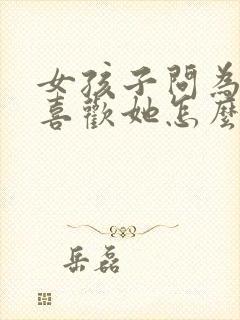 女孩子問為
喜歡她怎麼
岳磊